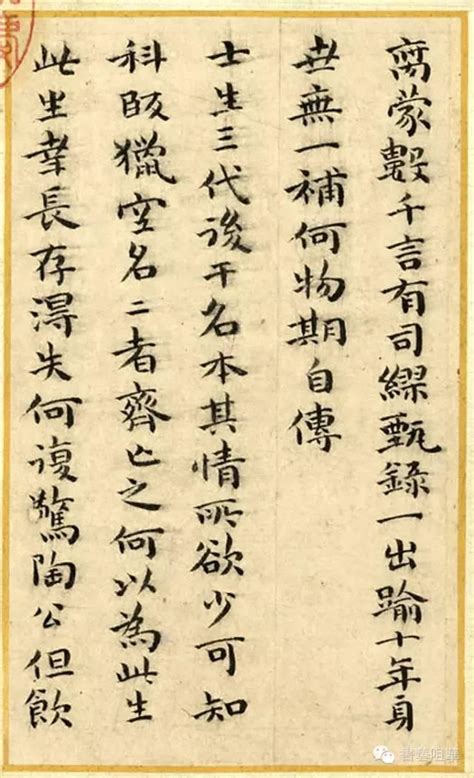 蒙數千言有司繆甄錄一出踰十年身
世無一補何物期自傳
士生三代後干名本其情所欲少可知
科取獵空名二者齊亡之何以為此生
此生幸長存得失何復驚陶公但飲